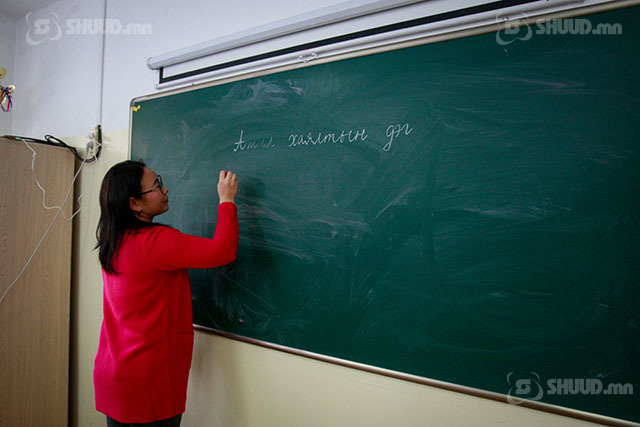 SHUUD.mn
SHUUD.mn
хаялтын дэг
SHUUD.mn